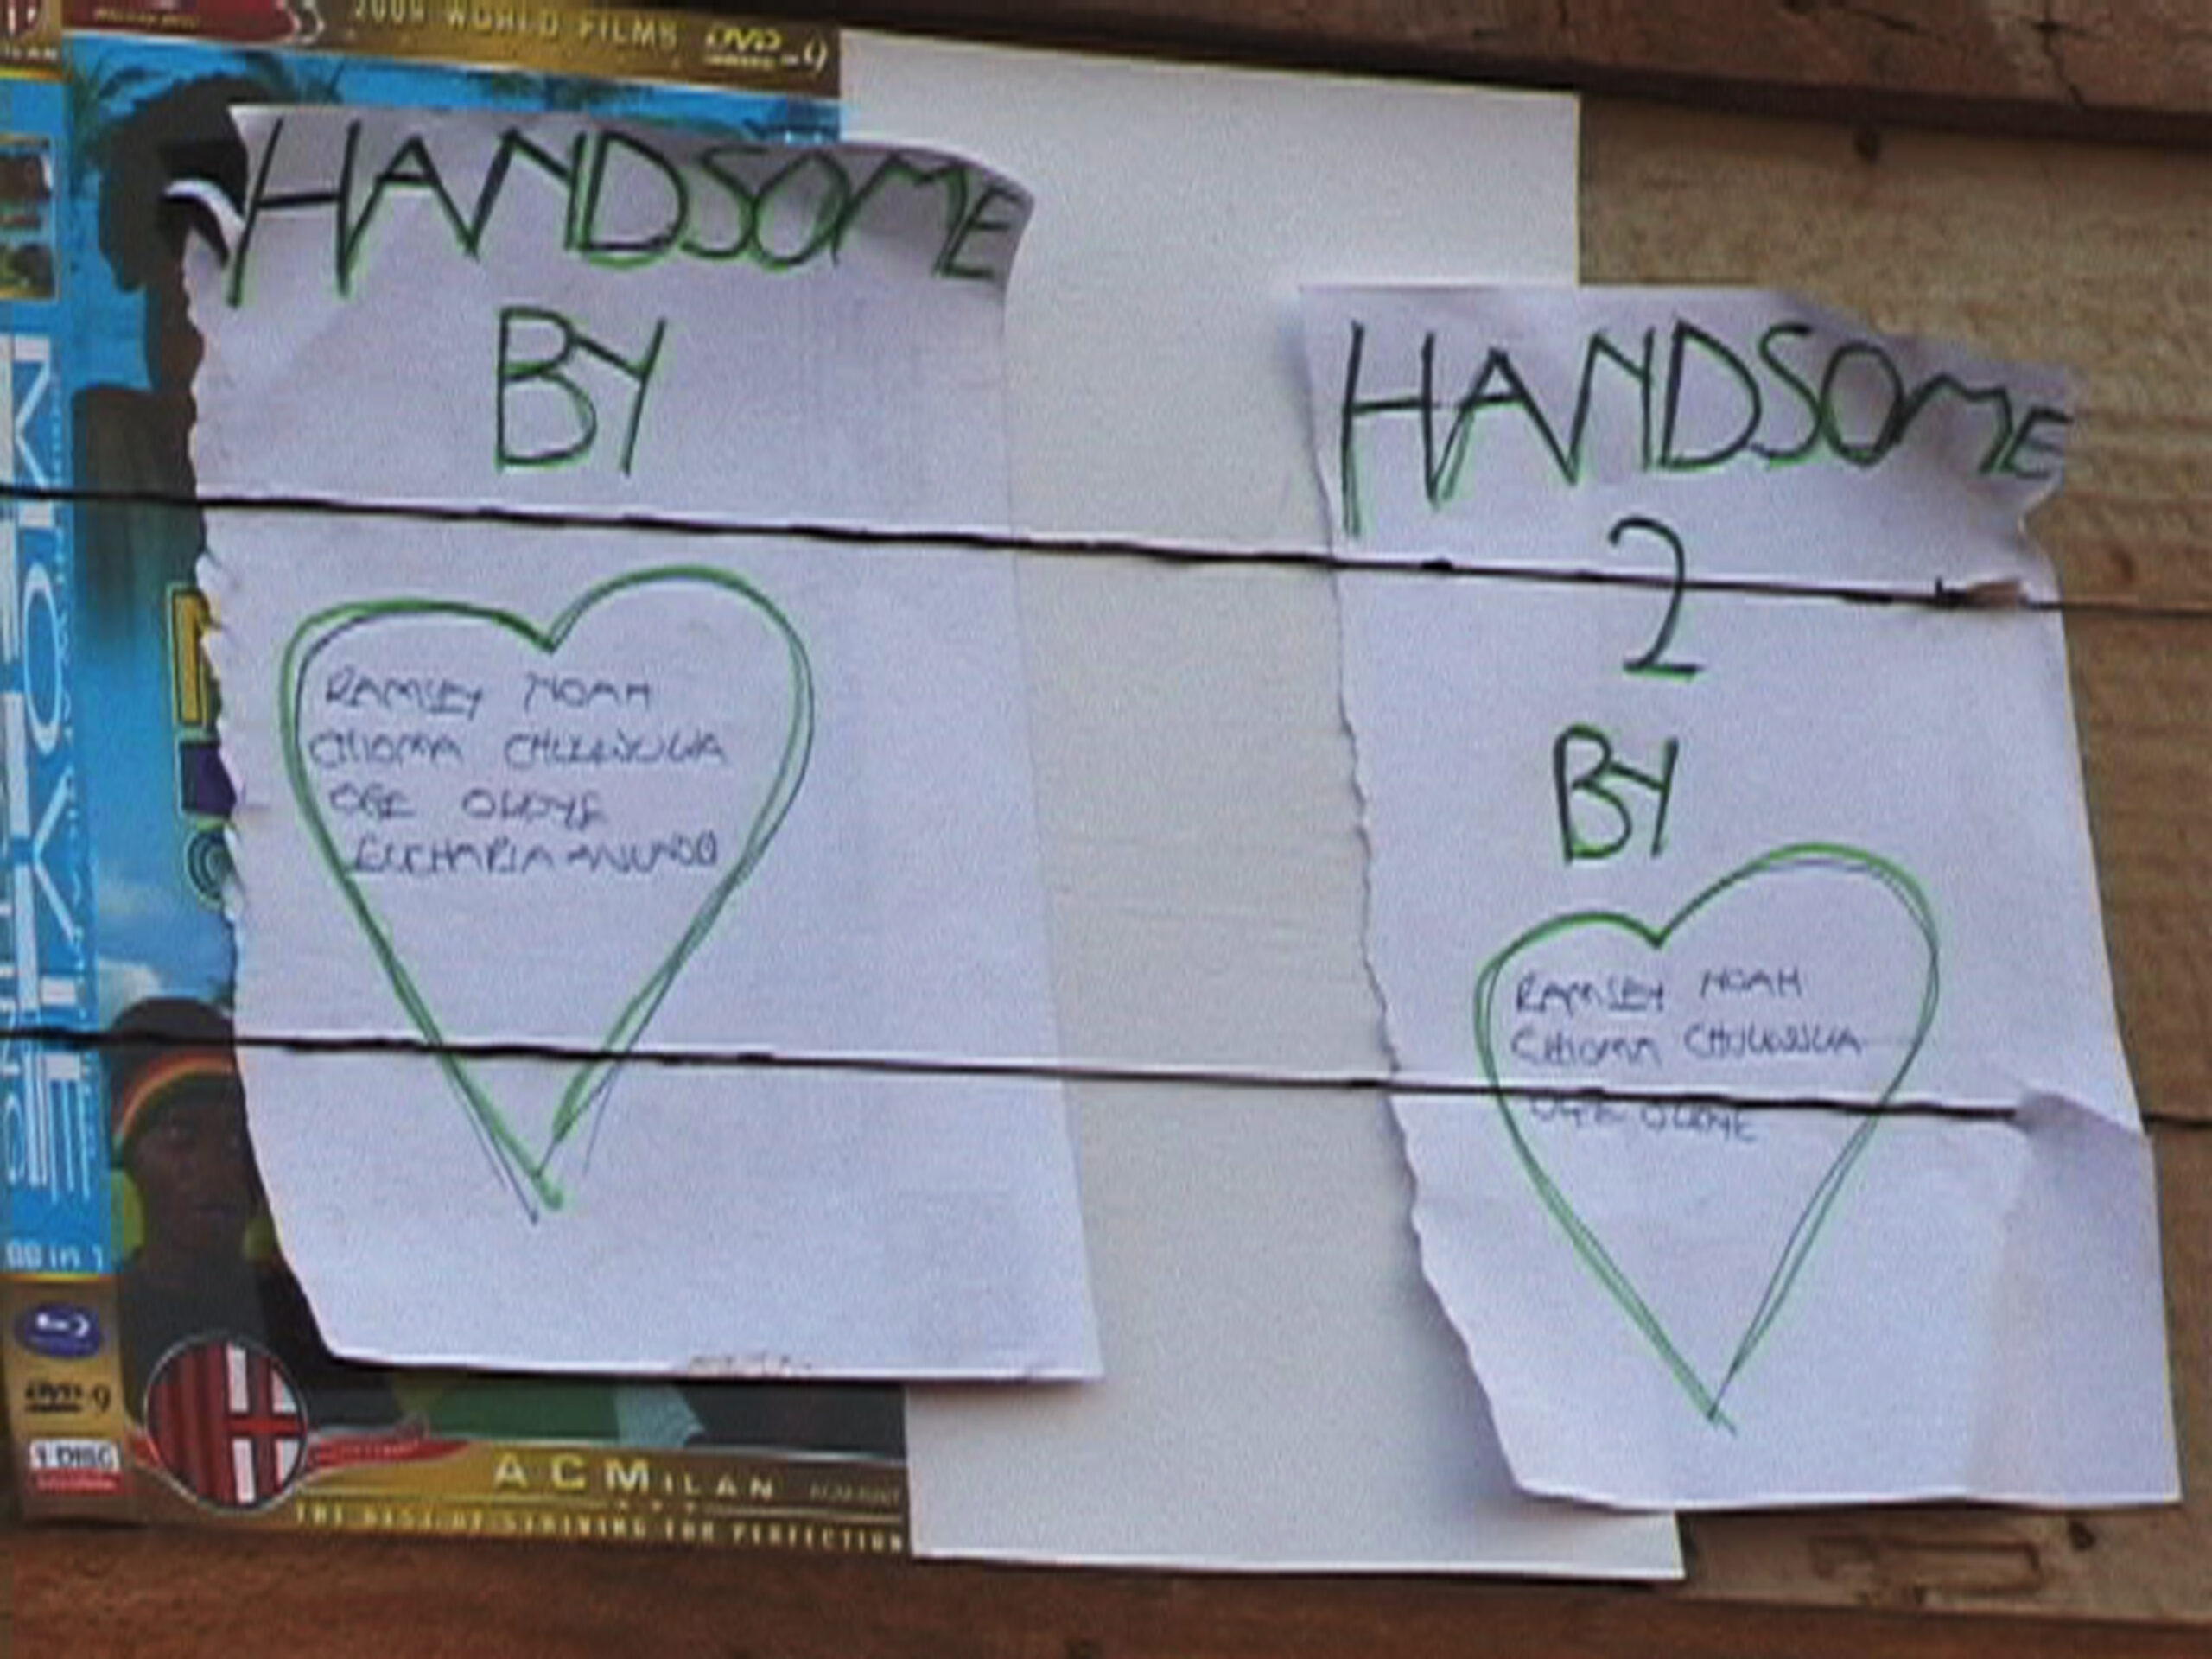 2009 WORLD FILMS DVD-9
HANDSOME
BY
RAMSEY NOAH
CHIOMA CHUKWUKA
OGE OKOYE
EUCHARIA ANUNOBI
HANDSOME
2
BY
RAMSEY NOAH
CHIOMA CHUKWUKA
OGE OKOYE
MOVIE
DVD-9
1 DISC
AC MILAN
THE BEST OF STRIVING FOR PERFECTION